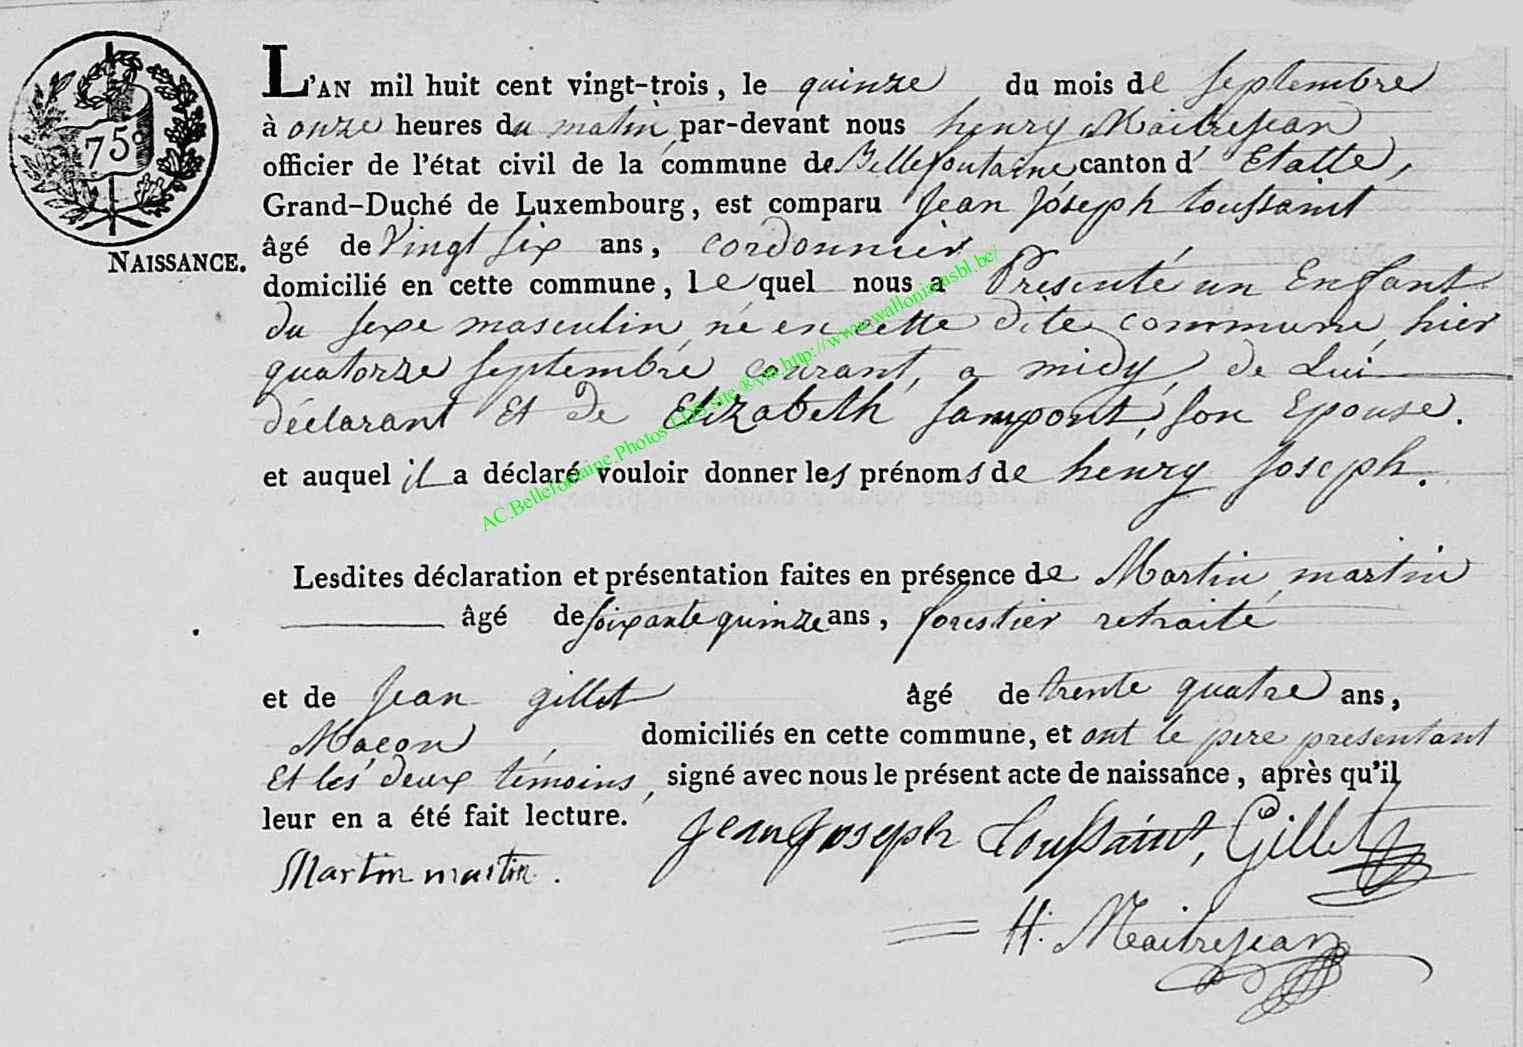 75c
NAISSANCE.
L'AN mil huit cent vingt-trois, le quinze du mois de septembre
à onze heures du matin, par-devant nous henry Maitrejean
officier de l'état civil de la commune de Bellefontaine canton d' Etalle,
Grand-Duché de Luxembourg, est comparu Jean Joseph toussaint
âgé de vingt six ans, cordonnier
domicilié en cette commune, lequel nous a Presenté un Enfant
du sexe masculin, né en cette dite commune, hier
quatorze septembre courant, a midy de Lui
déclarant Et de Elizabeth Sampont, son Epouse.
et auquel il a déclaré vouloir donner les prénoms de henry Joseph.
Lesdites déclaration et présentation faites en présence de Martin martin
âgé de soixante quinze ans, forestier retraité
et de Jean gillet âgé de trente quatre ans,
Maçon domiciliés en cette commune, et ont le pere presentant
Et les deux témoins, signé avec nous le présent acte de naissance, après qu'il
leur en a été fait lecture. Jean Joseph Toussaint, Gillet
Martin martin.
H. Maitrejean